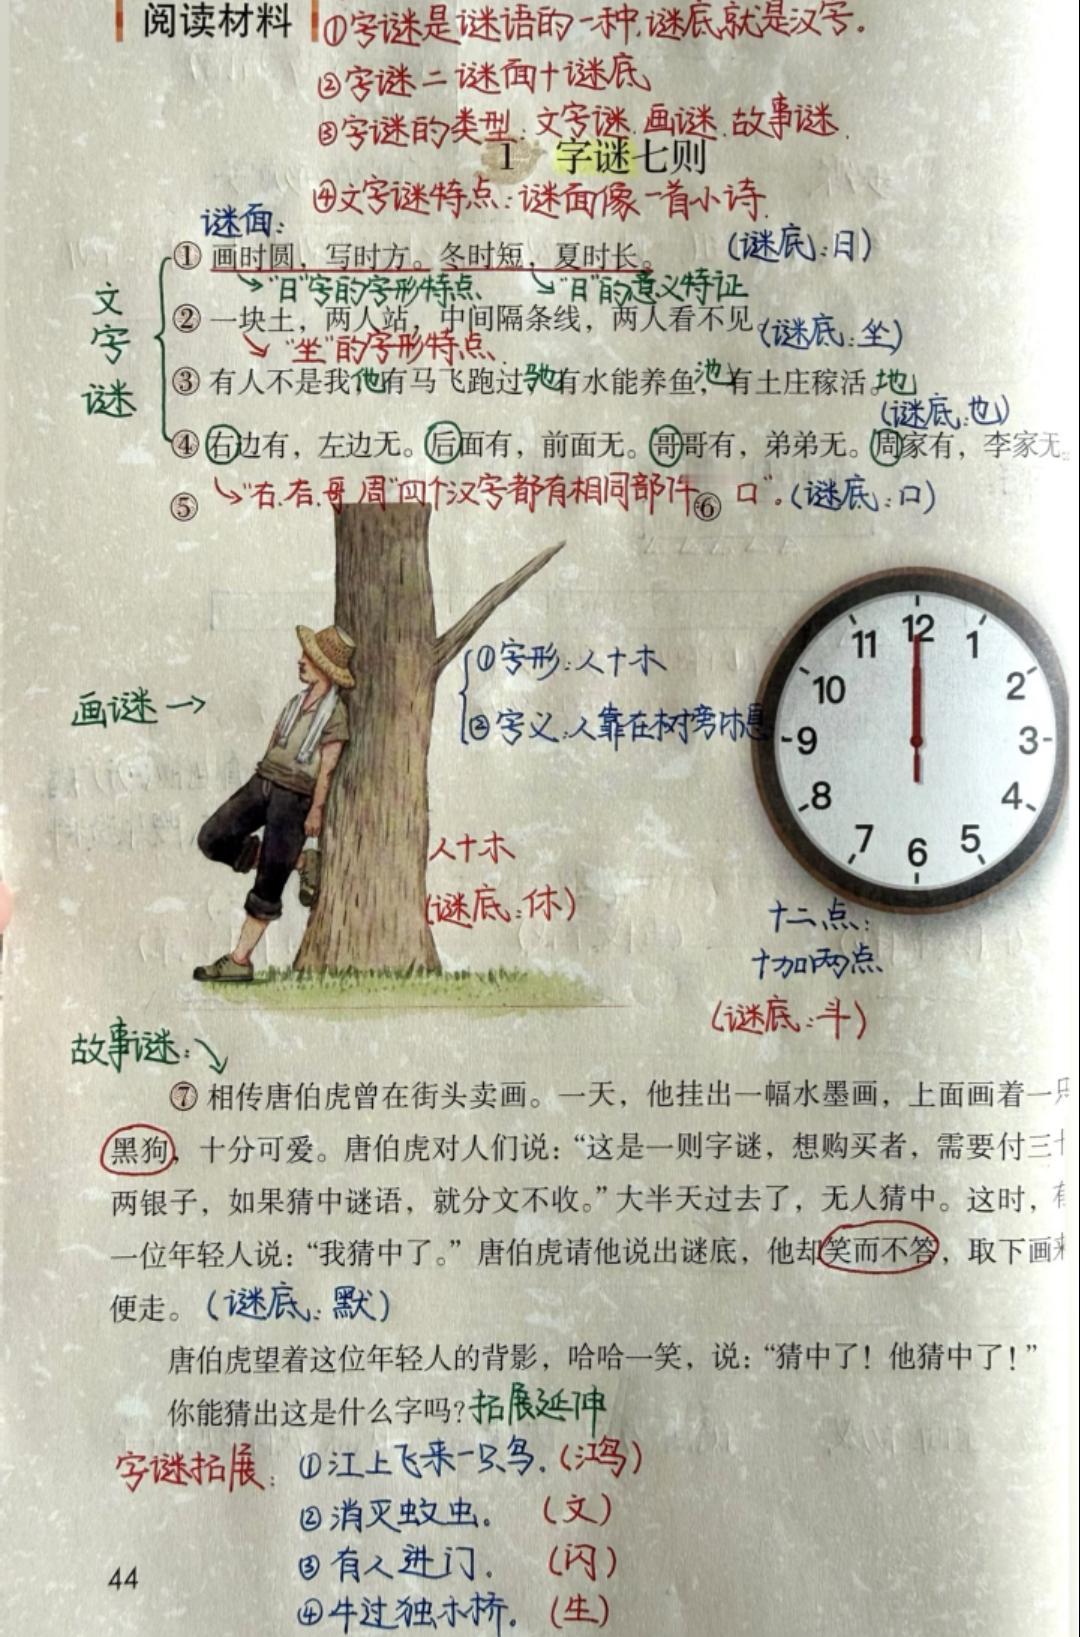 阅读材料 ①字谜是谜语的一种,谜底就是汉字。
②字谜二谜面十谜底
③字谜的类型:文字谜.画谜.故事谜.
1 字谜七则
④文字谜特点:谜面像一首小诗.
谜面:
① 画时圆，写时方。冬时短，夏时长。 (谜底:日)
"日"字的字形特点 "日"的意义特征
文字谜
② 一块土，两人站，中间隔条线，两人看不见。(谜底:坐)
"坐"的字形特点
③ 有人不是我,他有马飞跑过,驰有水能养鱼,池有土庄稼活。地
(谜底:也)
④ 右边有，左边无。后面有，前面无。哥哥有，弟弟无。周家有，李家无。
⑤ "右.后.哥.周"四个汉字都有相同部件 ⑥ 口"。(谜底:口)
11 12 1
10 2
9 3
8 4
7 6 5
①字形:人十木
画谜→
②字义:人靠在树旁休息
人十木
(谜底:休)
十二点:
十加两点
(谜底:斗)
故事谜:
⑦ 相传唐伯虎曾在街头卖画。一天，他挂出一幅水墨画，上面画着一只
黑狗，十分可爱。唐伯虎对人们说：“这是一则字谜，想购买者，需要付三十
两银子，如果猜中谜语，就分文不收。”大半天过去了，无人猜中。这时，有
一位年轻人说：“我猜中了。”唐伯虎请他说出谜底，他却笑而不答，取下画来
便走。(谜底:默)
唐伯虎望着这位年轻人的背影，哈哈一笑，说：“猜中了！他猜中了！”
你能猜出这是什么字吗？拓展延伸
字谜拓展: ①江上飞来一只鸟.(鸿)
②消灭蚊虫。 (文)
③有人进门. (闪)
④牛过独木桥. (生)
44